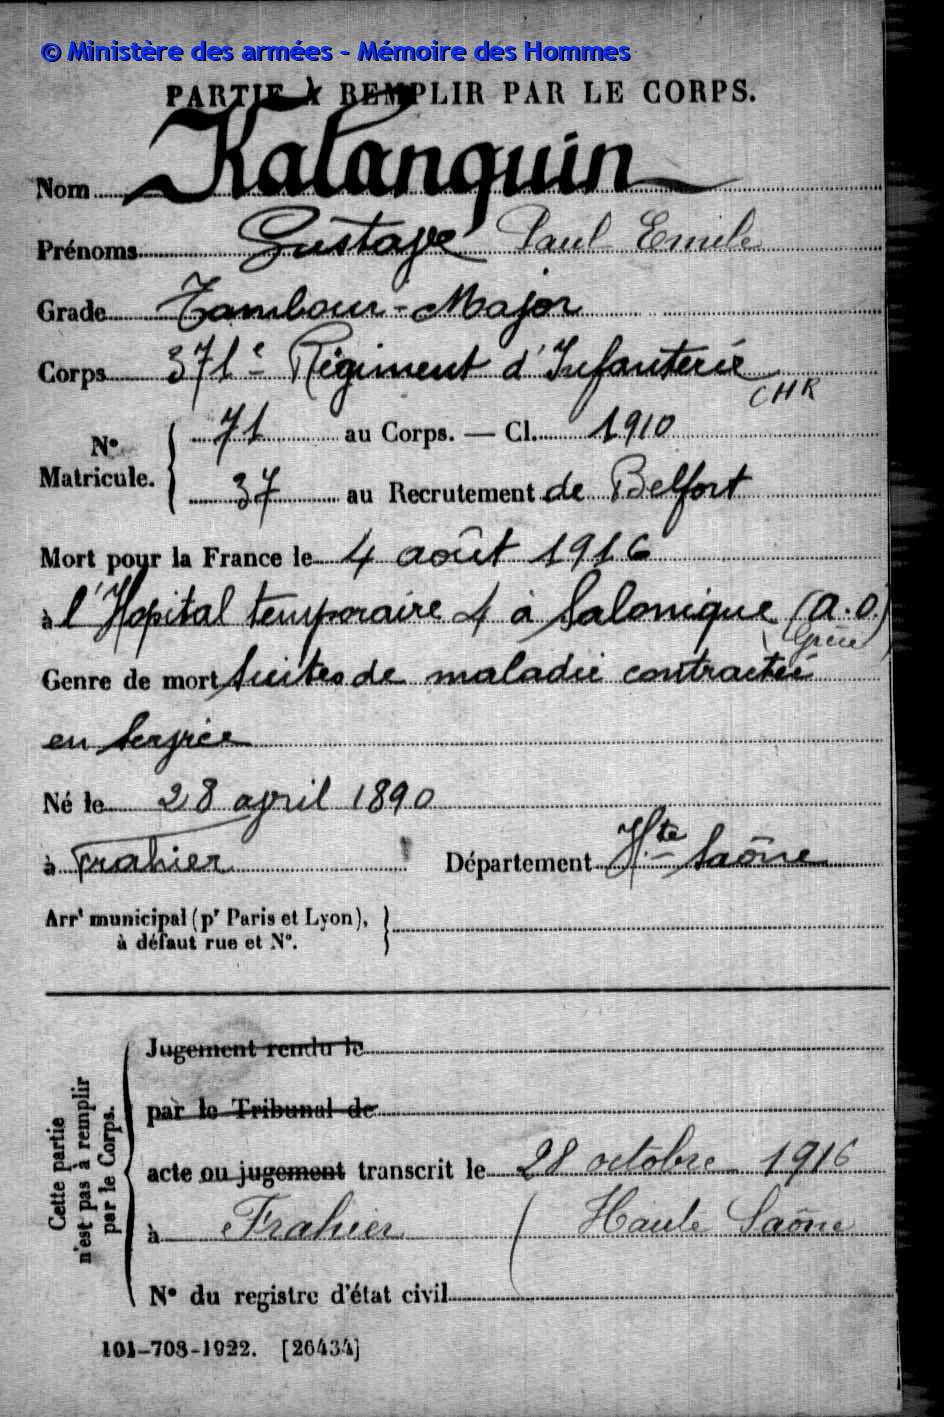 © Ministère des armées - Mémoire des Hommes
PARTIE À REMPLIR PAR LE CORPS.
Nom Kalanquin
Prénoms Gustave Paul Emile
Grade Tambour-Major
Corps 371e Régiment d'Infanterie
CHR
No Matricule. 71 au Corps. — Cl. 1910
37 au Recrutement de Belfort
Mort pour la France le 4 août 1916
à l'Hopital temporaire 4 à Salonique (A.O.)
(Grèce)
Genre de mort Suites de maladie contractée
en service
Né le 28 avril 1890
à Frahier Département Hte Saône
Arrt municipal (pr Paris et Lyon),
à défaut rue et No.
Cette partie
n'est pas à remplir
par le Corps.
Jugement rendu le
par le Tribunal de
acte ou jugement transcrit le 28 octobre 1916
à Frahier (Haute Saône
No du registre d'état civil
101-708-1922. [26434]